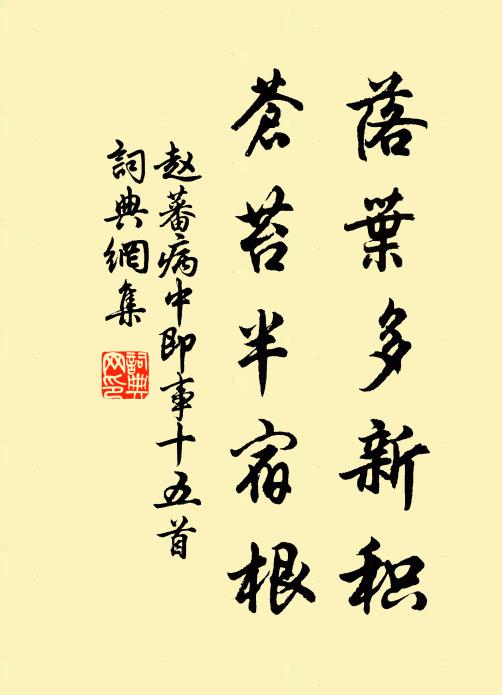 落葉多新积
蒼苔半宿根
赵蕃病中即事十五首
詞典網集
詞典网印